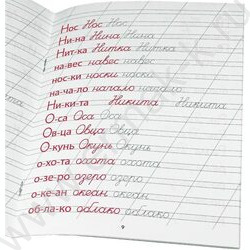 Нос Нос Нос
Ни-на Нина Нина
Нит-ка Нитка Нитка
на-вес навес навес
нос-ки носки носки
на-ча-ло начало начало
Ни-ки-та Никита Никита
О-са Оса Оса
Ов-ца Овца Овца
О-кунь Окунь Окунь
о-хо-та охота охота
о-зе-ро озеро озеро
о-ке-ан океан океан
об-ла-ко облако облако
9